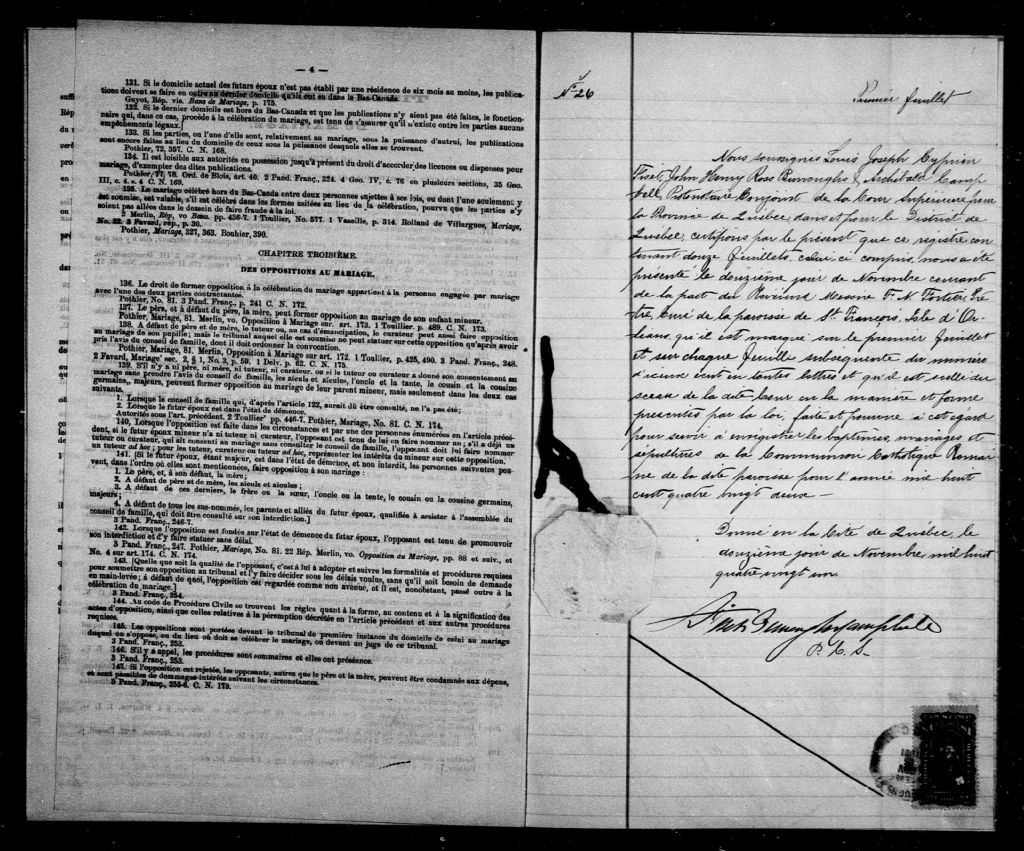 — 4 —
131. Si le domicile actuel des futurs époux n'est pas établi par une résidence de six mois au moins, les publica-
tions doivent se faire en outre au dernier domicile qu'ils ont eu dans le Bas-Canada.
Guyot, Rép. vis. Bans de Mariage, p. 175.
132. Si le dernier domicile est hors du Bas-Canada et que les publications n'y aient pas été faites, le fonction-
naire qui, dans ce cas, procède à la célébration du mariage, est tenu de s'assurer qu'il n'existe entre les parties aucuns
empêchements légaux.]
133. Si les parties, ou l'une d'elles sont, relativement au mariage, sous la puissance d'autrui, les publications
sont encore faites au lieu du domicile de ceux sous la puissance desquels elles se trouvent.
Pothier, 72, 357. C. N. 168.
134. Il est loisible aux autorités en possession jusqu'à présent du droit d'accorder des licences ou dispenses pour
mariage, d'exempter des dites publications.
Pothier, 77, 78. Ord. de Blois, art. 40. 2 Pand. Franç., 324. 4 Geo. IV, c. 76 en plusieurs sections, 35 Geo.
III, c. 4 s. 4 C. N. 169.
135. Le mariage célébré hors du Bas-Canda entre deux personnes sujettes à ses lois, ou dont l'une seulement y
est soumise, est valable, s'il est célébré dans les formes usitées au lieu de la célébration, pourvu que les parties n'y
soient pas allées dans le dessein de faire fraude à la loi.
2 Merlin, Rép, vo Bans, pp. 436-7. 1 Toullier, No. 577. 1 Vazeille, p. 314. Rolland de Villargues, Mariage,
No. 22. 3 Favard, rép., p. 30.
Pothier, Mariage, 327, 363. Bouhier, 390.
CHAPITRE TROISIÈME.
DES OPPOSITIONS AU MARIAGE.
136. Le droit de former opposition à la célébration du mariage appartient à la personne engagée par mariage
avec l'une des deux parties contractantes.
Pothier, No. 81. 3 Pand. Franç., p. 241 C. N. 172.
137. Le père, et à défaut du père, la mère, peut former opposition au mariage de son enfant mineur.
Pothier, Mariage, 81. Merlin, vo. Opposition à Mariage sur. art. 173. 1 Touillier p. 489. C. N. 173.
138. A défaut de père et de mère, le tuteur ou, au cas d'émancipation, le curateur peut aussi faire opposition
au mariage de son pupille; mais le tribunal auquel elle est soumise ne peut statuer sur cette opposition qu'après avoir
pris l'avis du conseil de famille, dont il doit ordonner la convocation.
Pothier, Mariage, 81. Merlin, Opposition à Mariage sur art. 172. 1 Toullier, p. 425, 490. 3 Pand. Franç., 248.
2 Favard, Mariage sec. 2. § 1, No. 3, p. 59. 1 Delv. p. 62. C. N. 175.
139. S'il n'y a ni père, ni mère, ni tuteur, ni curateur, ou si le tuteur ou curateur a donné son consentement au
mariage sans prendre l'avis du conseil de famille, les aïeuls et aïeules, l'oncle et la tante, le cousin et la cousine
germains, majeurs, peuvent former opposition au mariage de leur parent mineur, mais seulement dans les deux cas
suivants.
1. Lorsque le conseil de famille qui, d'après l'article 122, aurait dû être consulté, ne l'a pas été;
2. Lorsque le futur époux est dans l'état de démence.
Autorités sous l'art. précédent. 2 Toullier pp. 446-7. Pothier, Mariage, No. 81. C. N. 174.
140. Lorsque l'opposition est faite dans les circonstances et par une des personnes énumérées en l'article précé-
dent, si le futur époux mineur n'a ni tuteur ni curateur, l'opposant est tenu de lui en faire nommer un; s'il a déjà un
tuteur ou curateur, qui ait consenti au mariage sans consulter le conseil de famille, l'opposant doit lui faire nommer
un tuteur ad hoc; pour les tuteur, curateur ou tuteur ad hoc, représenter les intérêts du mineur sur cette opposition.
141. [Si le futur époux, étant majeur, est dans l'état de démence, et non interdit, les personnes suivantes peu-
vent, dans l'ordre où elles sont mentionnées, faire opposition à son mariage:
1. Le père, et, à son défaut, la mère;
2. A défaut de père et de mère, les aïeuls et aïeules;
3. A défaut de ces derniers, le frère ou la sœur, l'oncle ou la tente, le cousin ou la cousine germains,
majeurs;
4. A défaut de tous les sus-nommés, les parents et alliés du futur époux, qualifiés à assister à l'assemblée du
conseil de famille, qui doit être consulté sur son interdiction.]
3 Pand. Franç., 246-7.
142. Lorsque l'opposition est fondée sur l'état de démence du futur époux, l'opposant est tenu de promouvoir
son interdiction et d'y faire statuer sans délai.
3 Pand. Franç., 247. Pothier, Mariage, No. 81. 22 Rép. Merlin, vo. Opposition au Mariage, pp. 88 et suiv., et
No. 4 sur art. 174. C. N. 174.
143. [Quelle que soit la qualité de l'opposant, c'est à lui à adopter et suivre les formalités et procédures requises
pour soumettre son opposition au tribunal et l'y faire décider sous les délais voulus, sans qu'il soit besoin de demande
en main-levée; à défaut de quoi, l'opposition est regardée comme non avenue, et il est, nonobstant, passé outre à la
célébration du mariage.]
3 Pand. Franç., 254.
144. Au code de Procédure Civile se trouvent les règles quant à la forme, au contenu et à la signification des
actes d'opposition, ainsi que celles relatives à la péremption décrétée en l'article précédent et aux autres procédures
requises.
145. Les oppositions sont portées devant le tribunal de première instance du domicile de celui au mariage
duquel on s'oppose, ou du lieu où doit se célébrer le mariage, ou devant un juge de ce tribunal.
3 Pand. Franç., 253.
146. S'il y a appel, les procédures sont sommaires et elles ont préséance.
3 Pand. Franç., 253.
147. Si l'opposition est rejetée, les opposants, autres que le père et la mère, peuvent être condamnés aux dépens,
et sont passibles de dommages-intérêts suivant les circonstances.
3 Pand. Franç., 255-6. C. N. 179.
N° 26
Premier feuillet
Nous soussignés Louis Joseph Cyprien
Fiset, John Henry Ross Burroughs & Archibald Camp
bell, Protonotaire Conjoint de la Cour Supérieure pour
la Province de Québec, dans et pour le District de
Québec, certifions par le présent que ce registre con
tenant douze feuillets, celui ci compris, nous a été
présenté le douzième jour de Novembre courant
de la part du Révérend Messire F. N. Fortier, Prê
tre, Curé de la paroisse de St. François, Isle d'Or-
léans, qu'il est marqué sur le premier feuillet
et sur chaque feuille subséquente du numéro
d'iceux écrit en toutes lettres et qu'il est scellé du
sceau de la dite Cour en la manière et forme
prescrites par la loi, faite et pourvue à cet égard
pour servir à enregistrer les baptêmes, mariages et
sépultures de la Communion Catholique Romai
ne de la dite paroisse pour l'année mil huit
cent quatre vingt deux —
Donné en la Cité de Québec, le
douzième jour de Novembre, mil huit
quatre vingt un.
Fiset Burroughs Campbell
P. C. S.